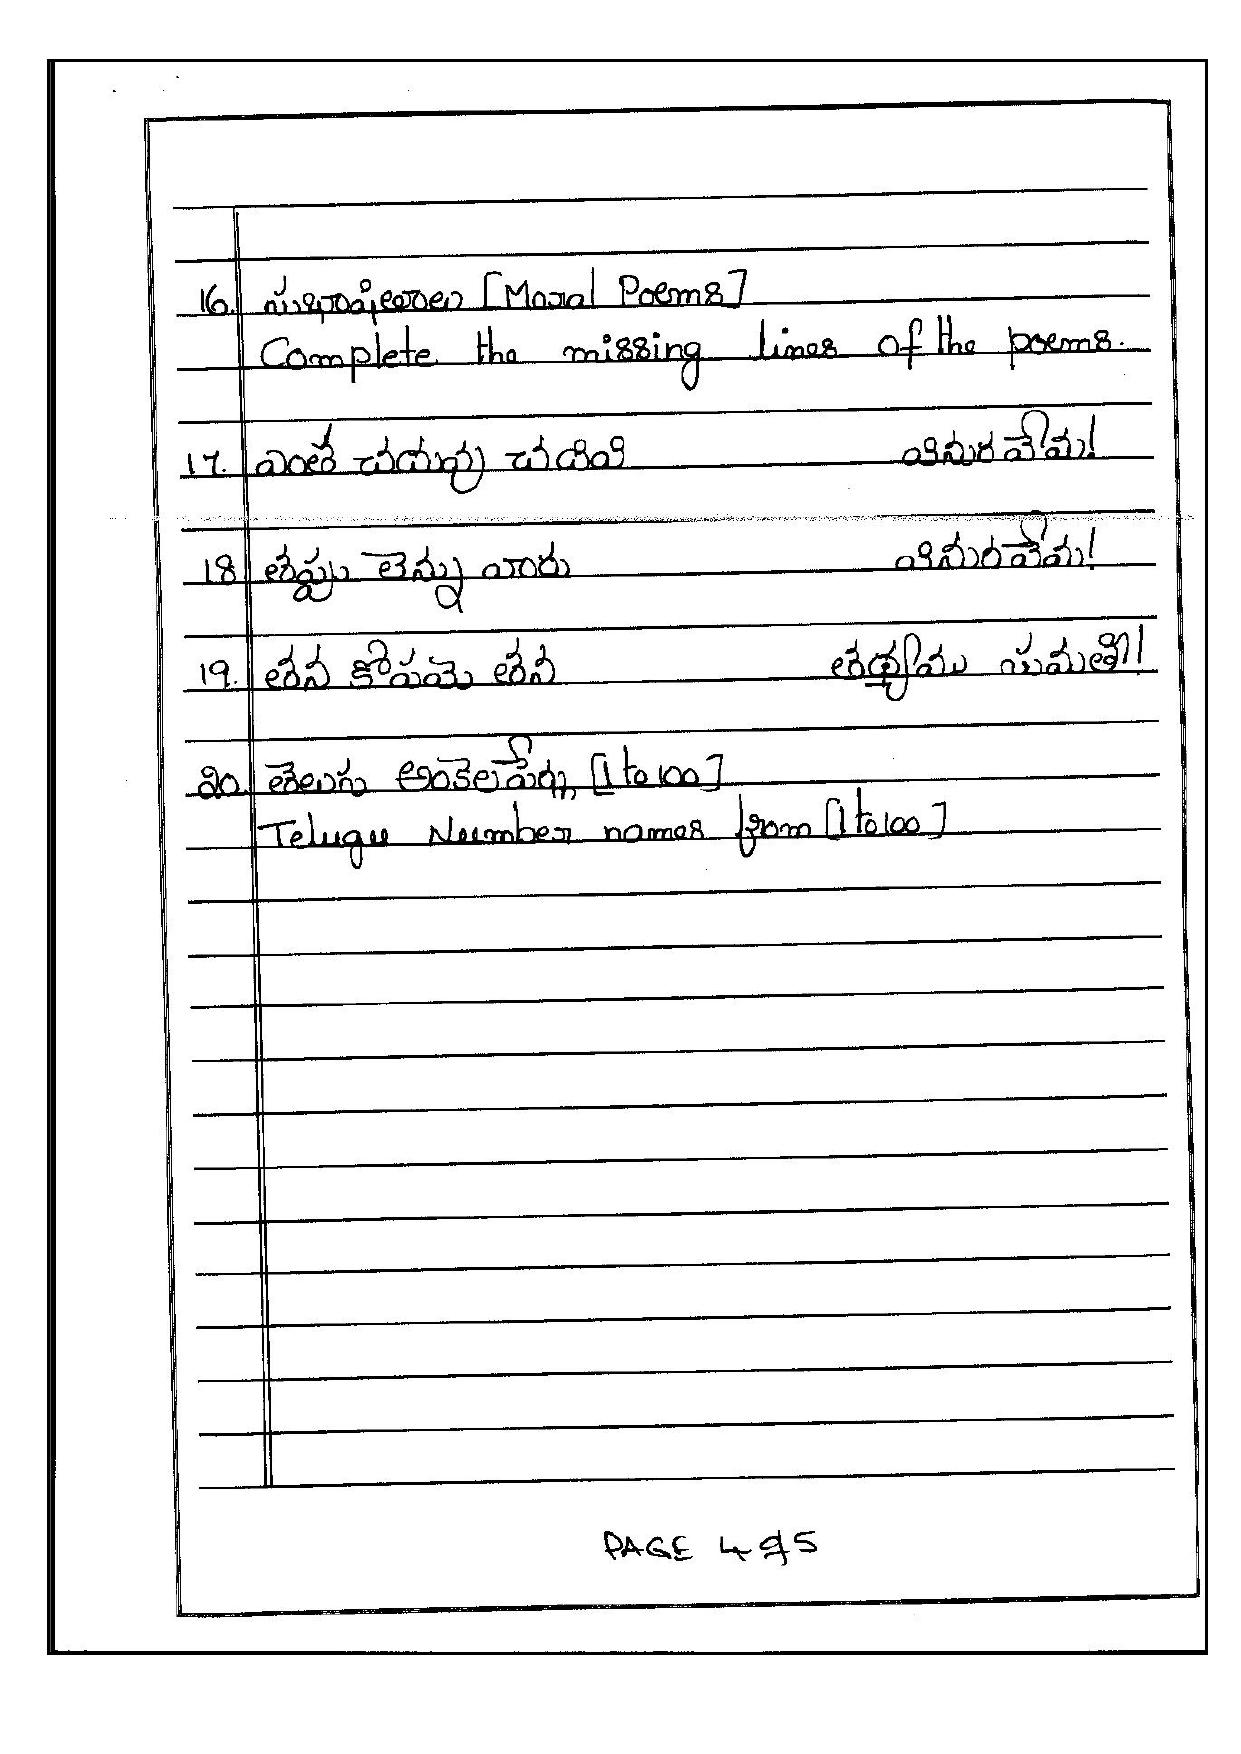 16. సుభాషితాలు [Moral Poems]
Complete the missing lines of the poems.
17. ఎంత చదువు చదివి వినురవేమ!
18 తప్పు లెన్ను వారు వినురవేమ!
19. తన కోపమె తన తథ్యము సుమతీ!
20. తెలుగు అంకెలపేర్లు [1 to 100]
Telugu Number names from [1 to 100]
PAGE 4 of 5